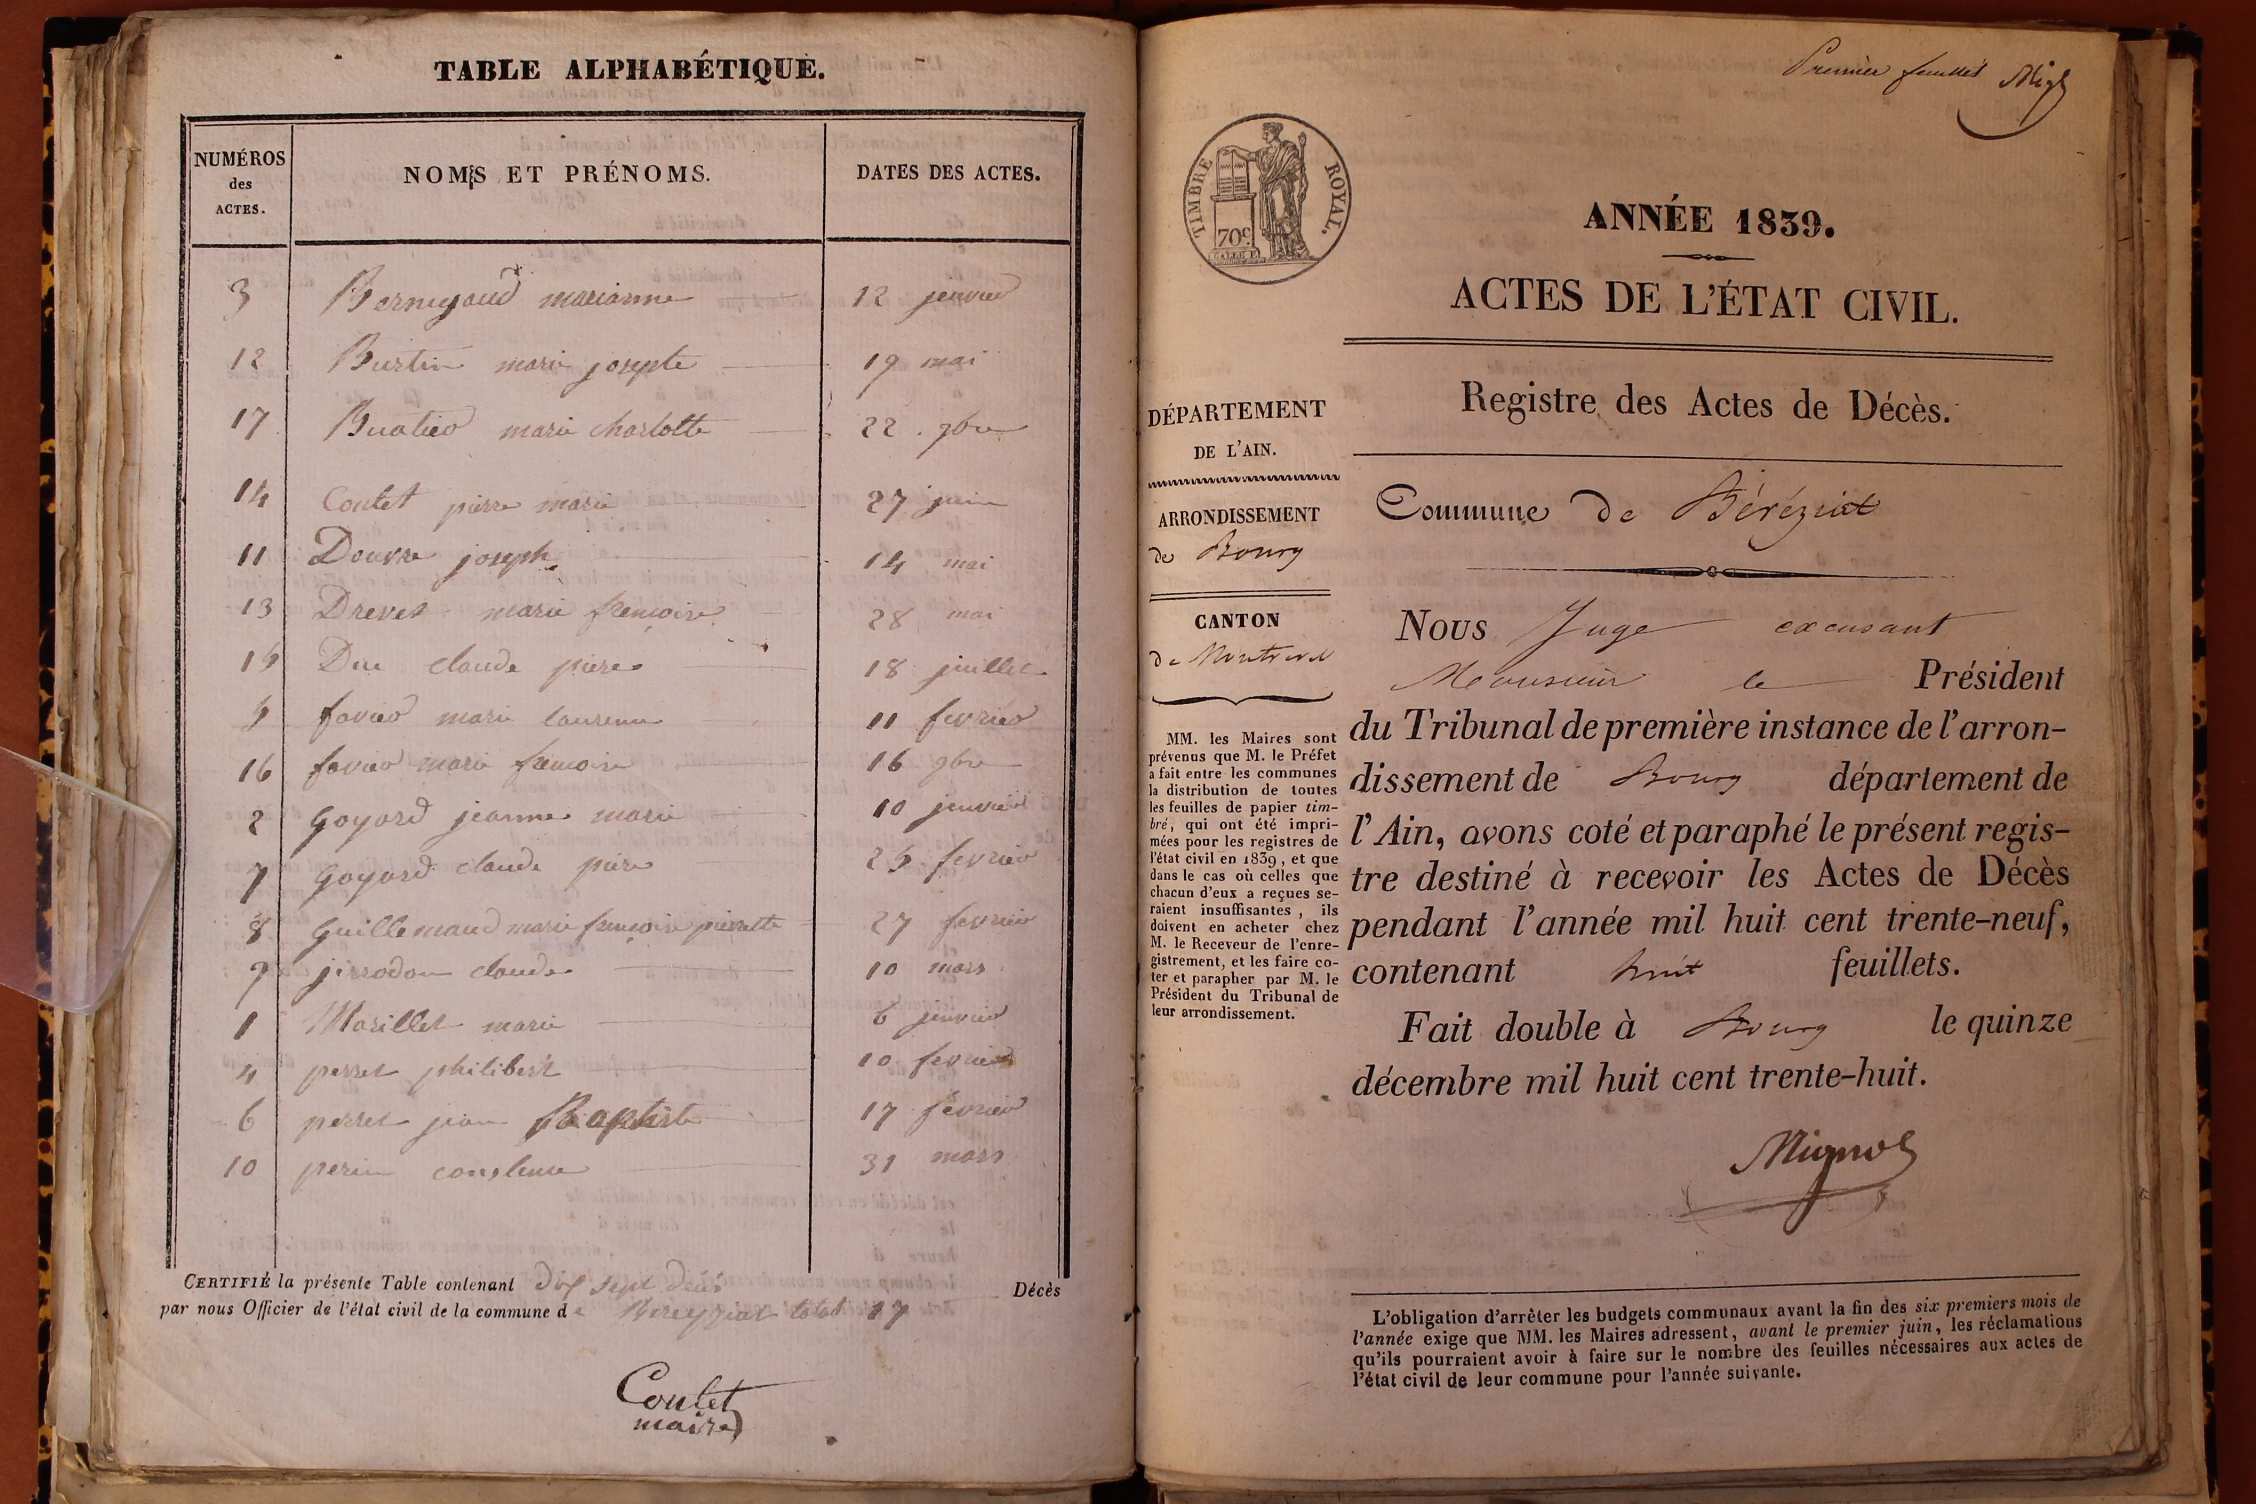 TABLE ALPHABÉTIQUE.
NUMÉROS
des
ACTES.
NOMS ET PRÉNOMS.
DATES DES ACTES.
3 Bernigaud marianne 12 janvier
12 Burtin marie josephe 19 mai
17 Buatier marie charlotte 22 9bre
14 Coutet pierre marie 27 juin
11 Douvre joseph 14 mai
13 Drevet marie françoise 28 mai
15 Duc claude pierre 18 juillet
5 favier marie laurence 11 fevrier
16 favier marie francoise 16 9bre
2 Goyard jeanne marie 10 janvier
7 Goyard claude piere 25 fevrier
8 Guillemaud marie françoise pierrette 27 fevrier
9 jirrodon claude 10 mars
1 Marillet marie 6 janvier
4 perret philibert 10 fevrier
6 perret jean Baptiste 17 fevrier
10 perin constence 31 mars
CERTIFIÉ la présente Table contenant dix sept Décès
par nous Officier de l'état civil de la commune de Bereyziat total 17
Coutet
maire
Premier feuillet Mig
TIMBRE ROYAL.
70c
ANNÉE 1839.
ACTES DE L'ÉTAT CIVIL.
Registre des Actes de Décès.
DÉPARTEMENT
DE L'AIN.
ARRONDISSEMENT
de Bourg
CANTON
de Montrevel
MM. les Maires sont
prévenus que M. le Préfet
a fait entre les communes
la distribution de toutes
les feuilles de papier tim-
bré, qui ont été impri-
mées pour les registres de
l'état civil en 1839, et que
dans le cas où celles que
chacun d'eux a reçues se-
raient insuffisantes, ils
doivent en acheter chez
M. le Receveur de l'enre-
gistrement, et les faire co-
ter et parapher par M. le
Président du Tribunal de
leur arrondissement.
Commune de Béréziat
Nous Juge excusant
Monsieur le Président
du Tribunal de première instance de l'arron-
dissement de Bourg département de
l'Ain, avons coté et paraphé le présent regis-
tre destiné à recevoir les Actes de Décès
pendant l'année mil huit cent trente-neuf,
contenant huit feuillets.
Fait double à Bourg le quinze
décembre mil huit cent trente-huit.
Mignot
L'obligation d'arrêter les budgets communaux avant la fin des six premiers mois de
l'année exige que MM. les Maires adressent, avant le premier juin, les réclamations
qu'ils pourraient avoir à faire sur le nombre des feuilles nécessaires aux actes de
l'état civil de leur commune pour l'année suivante.